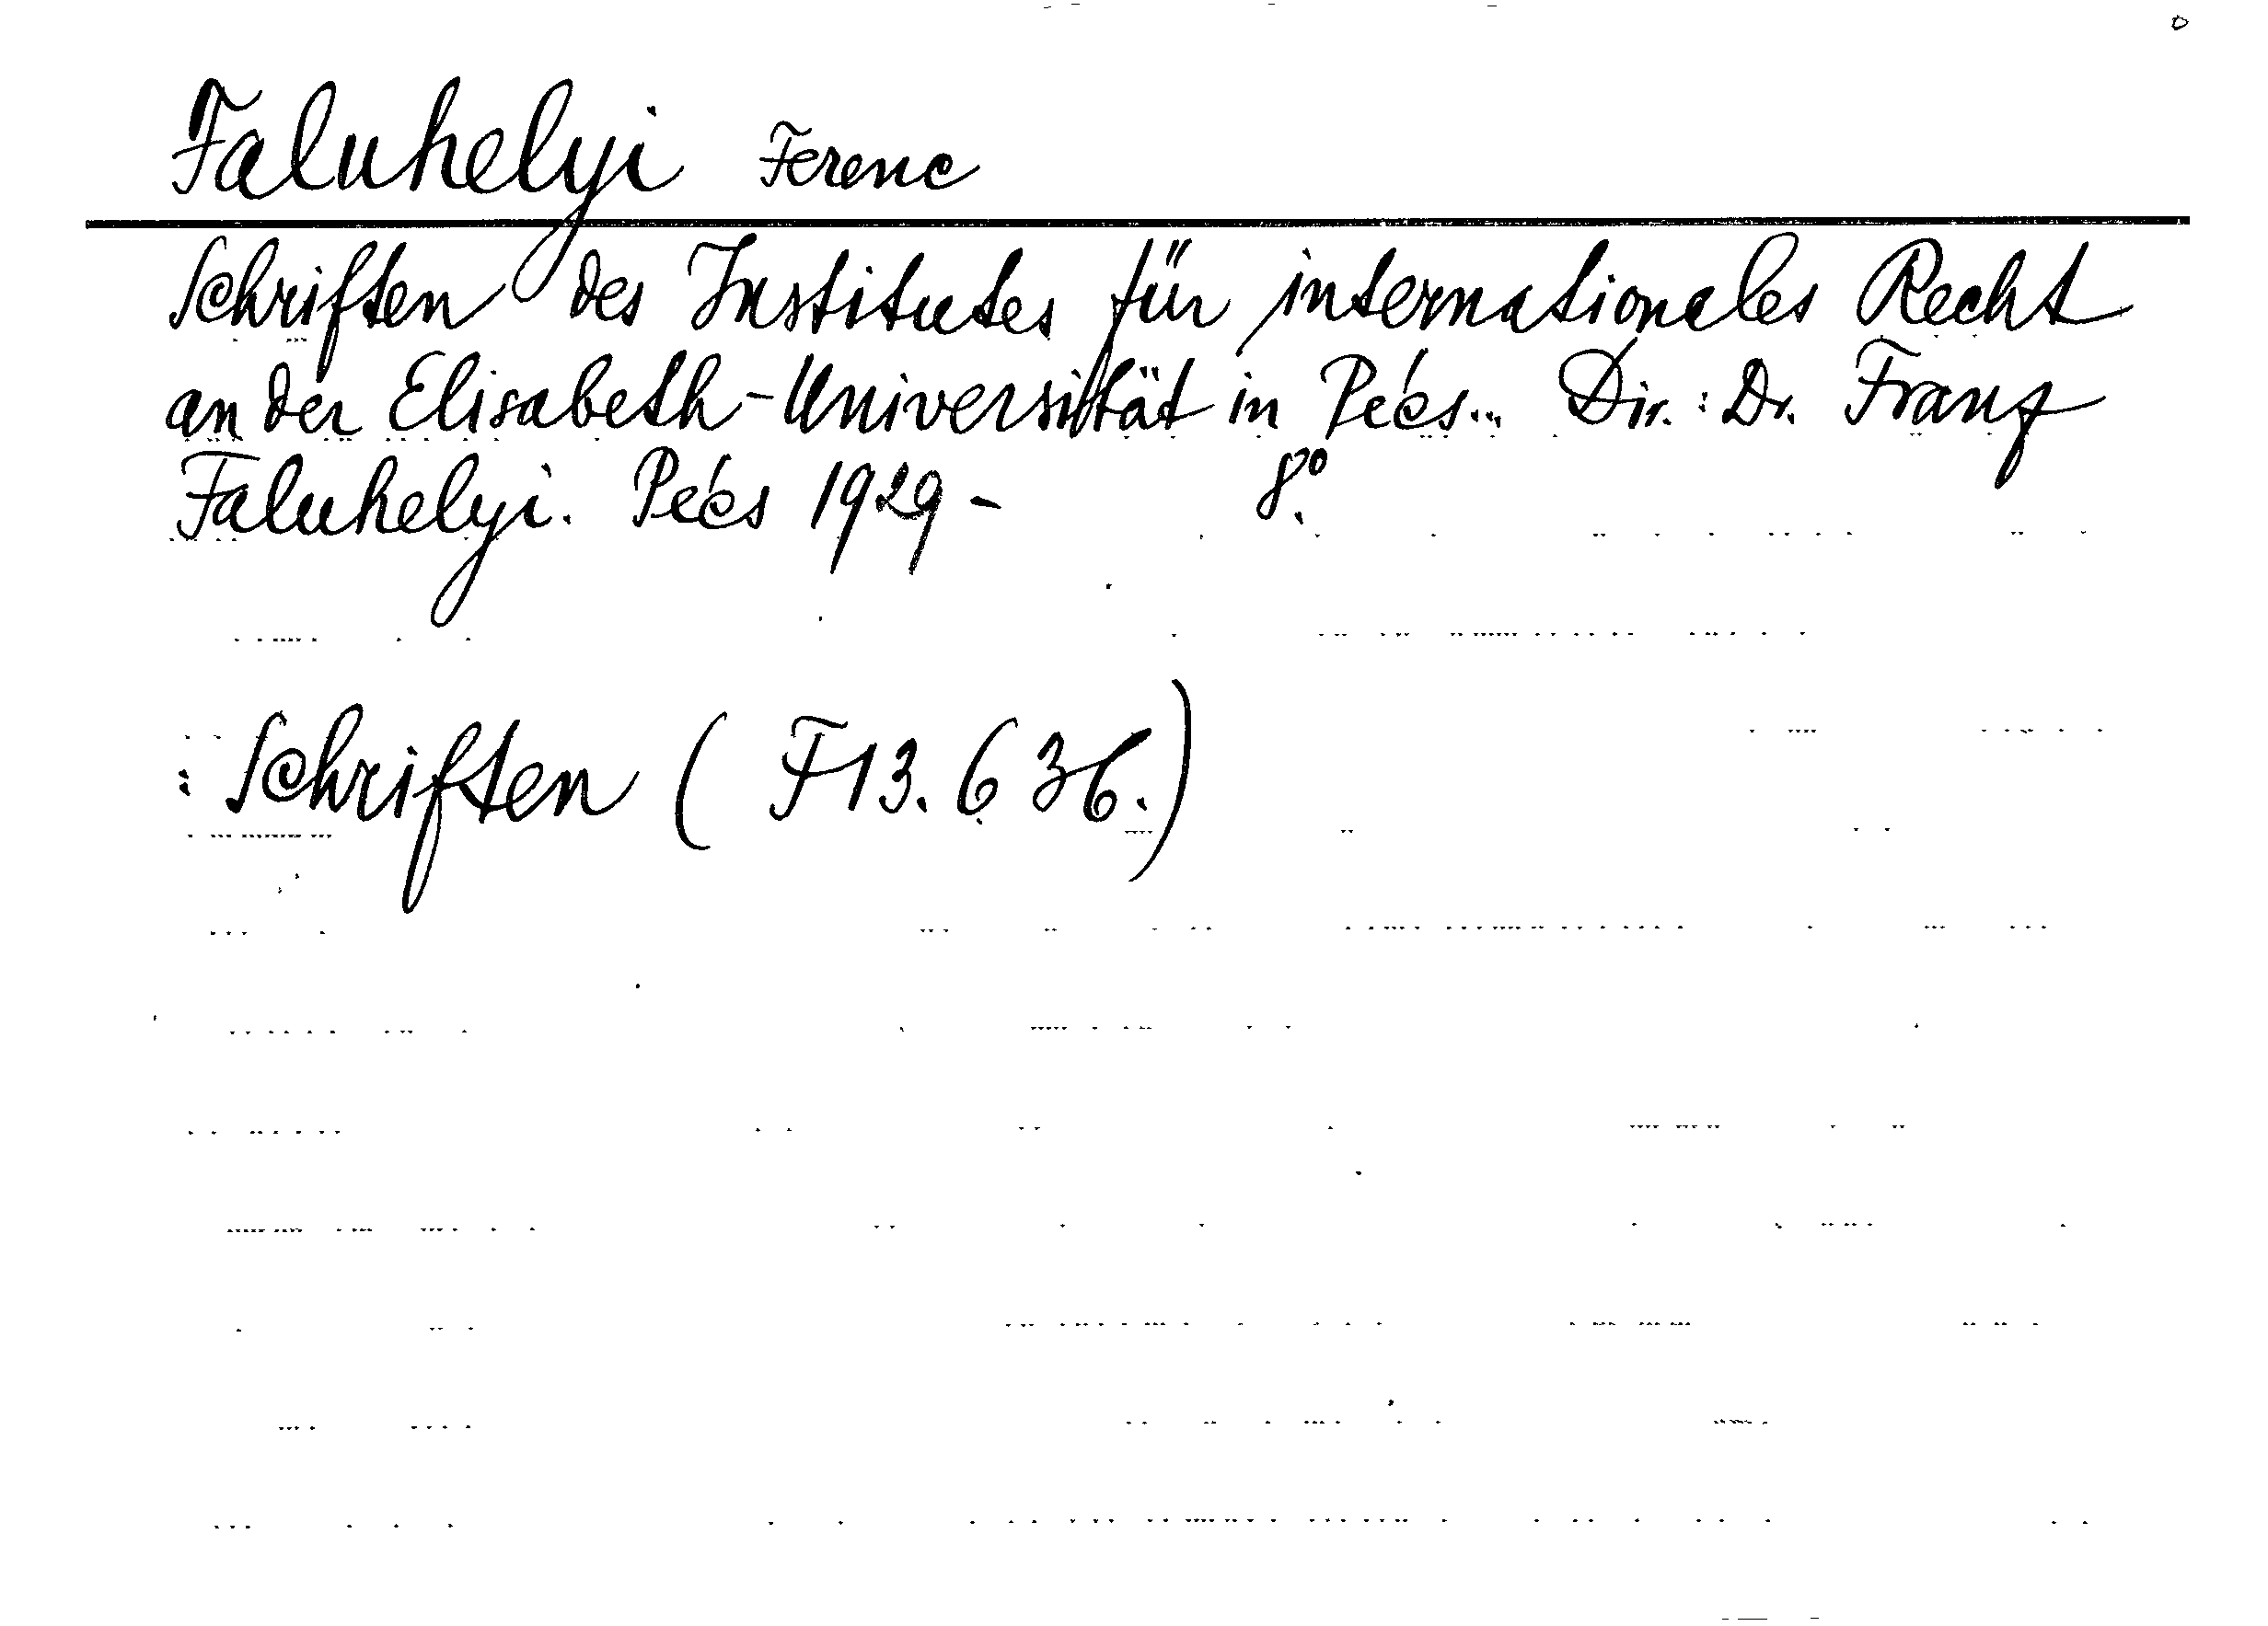 Faluhelyi Ferenc
Schriften des Institutes für internationales Recht
an der Elisabeth-Universität in Pécs... Dir.: Dr. Franz
Faluhelyi. Pécs 1929- 8º.
: Schriften ( F13.636.)